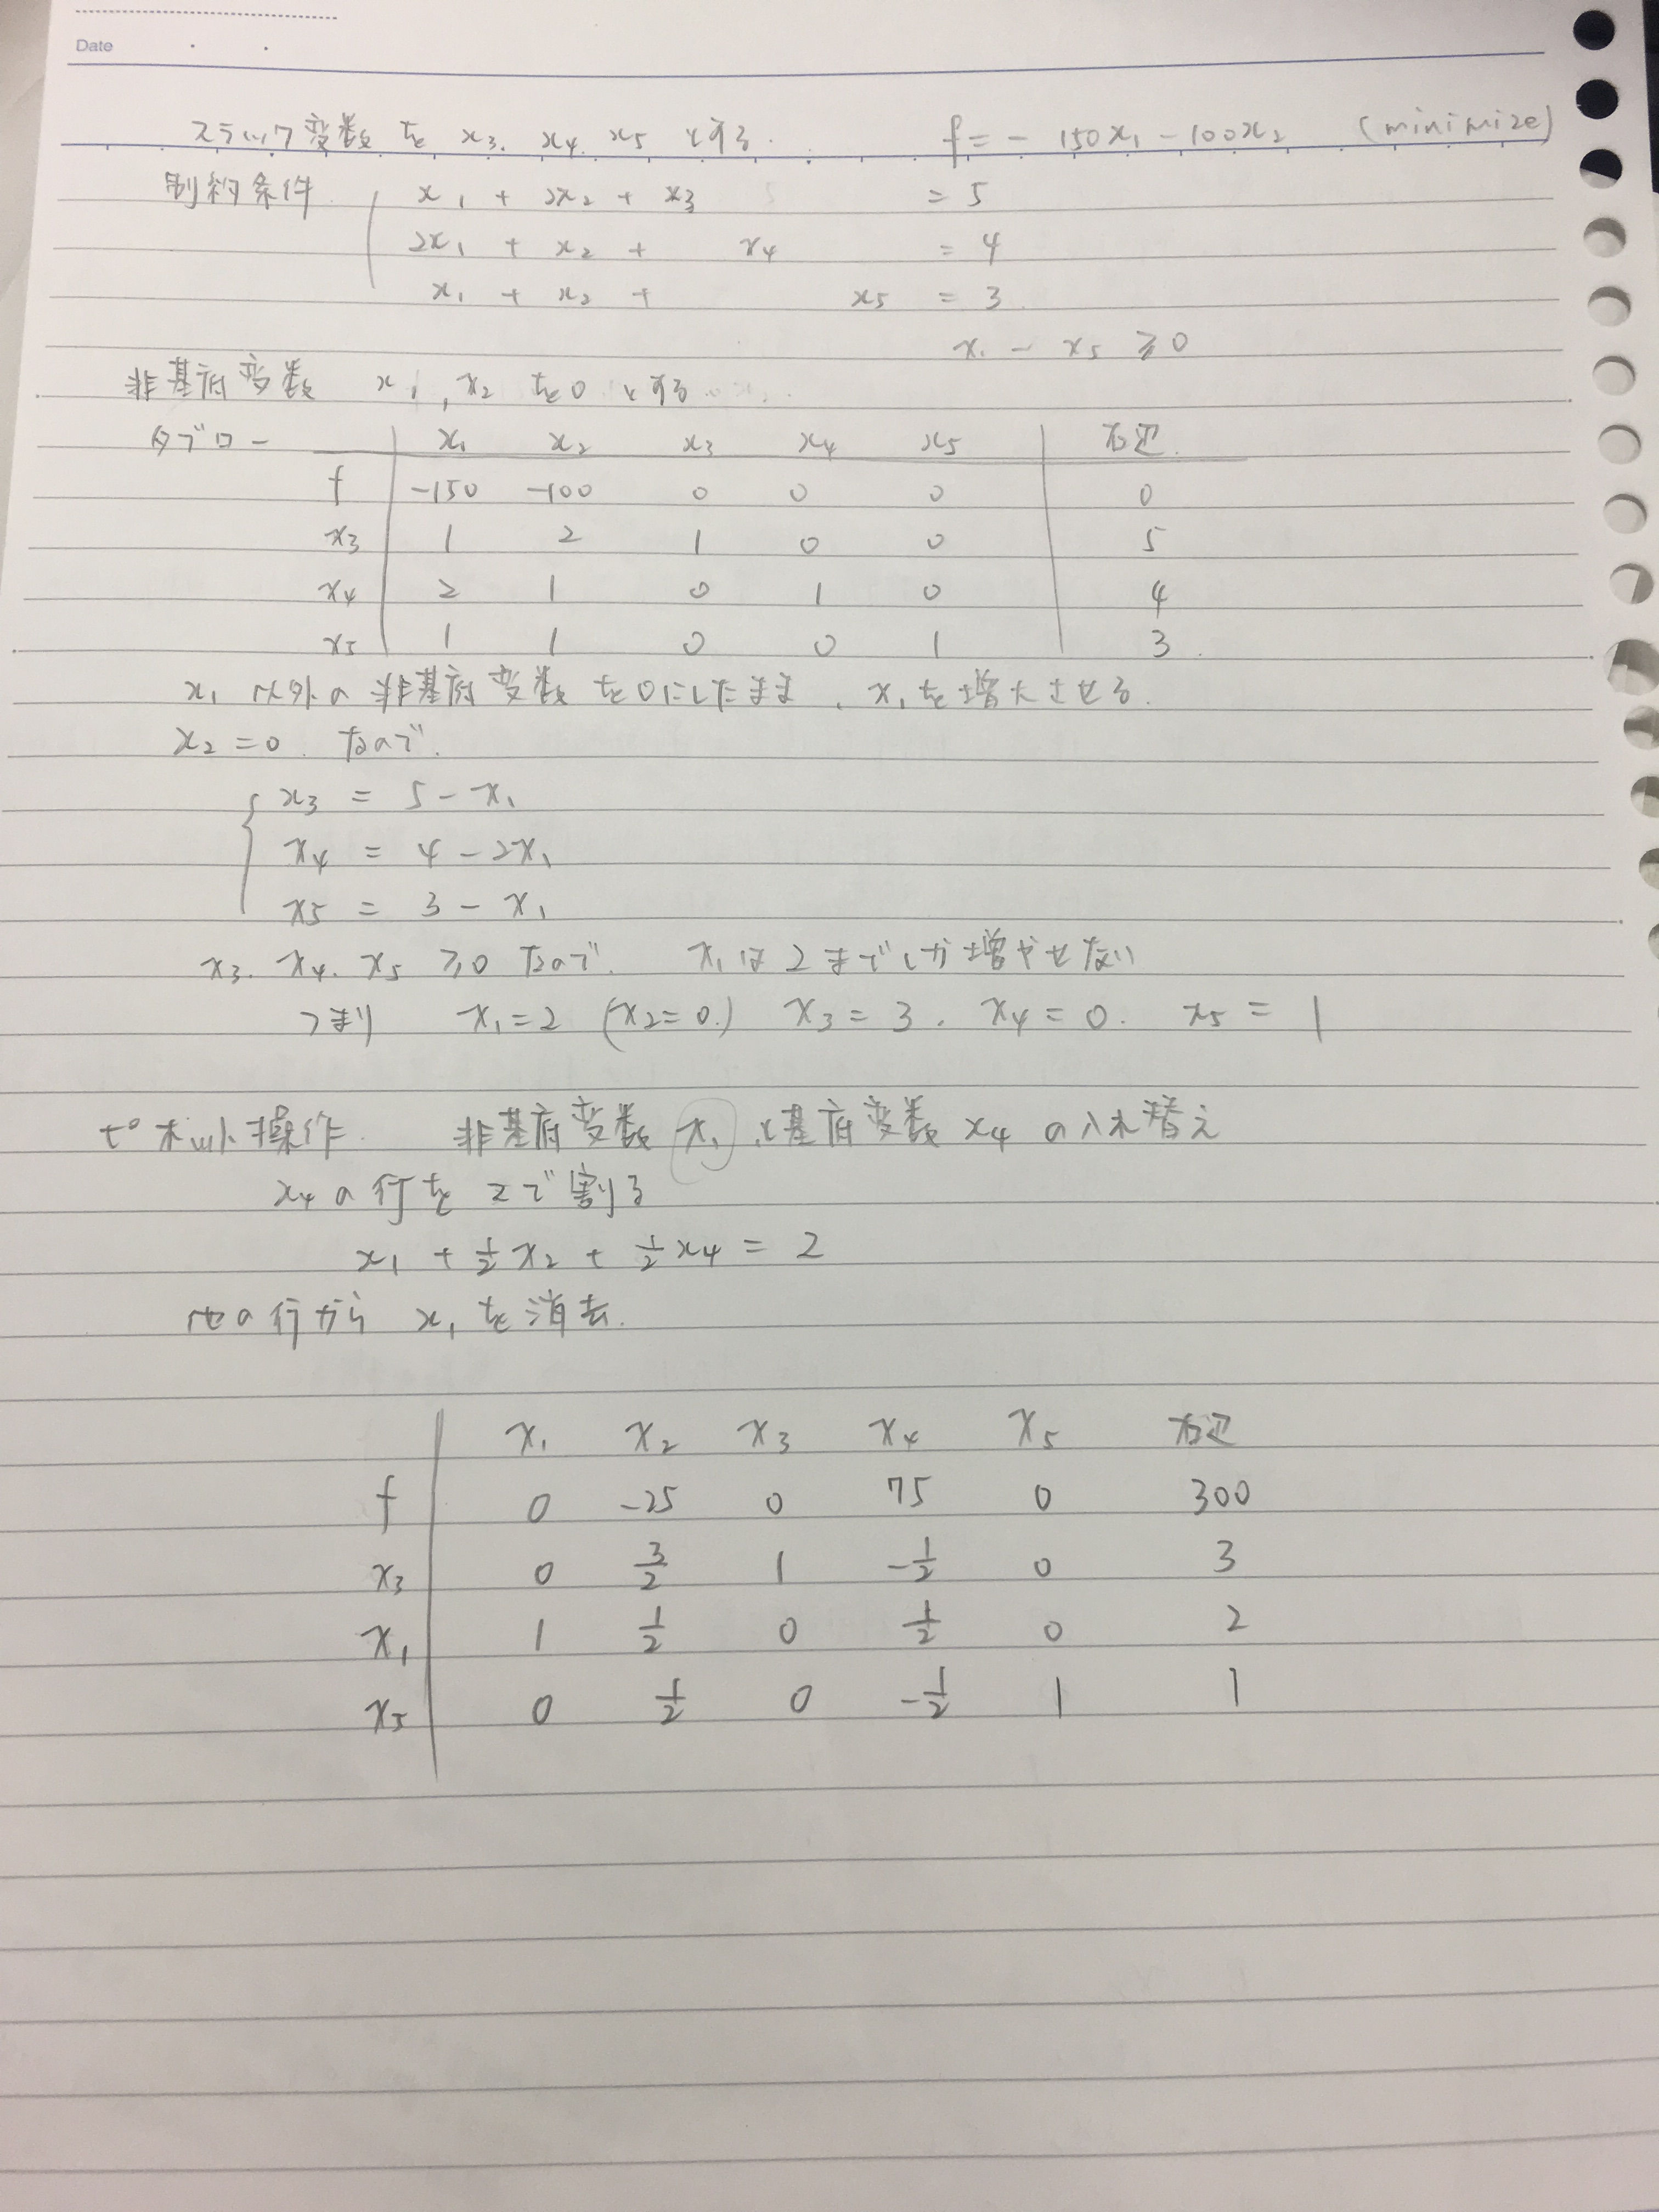 Date . .
スラック変数を x3. x4. x5 とする. f = - 150x1 - 100x2 (minimize)
制約条件 x1 + 2x2 + x3 = 5
2x1 + x2 + x4 = 4
x1 + x2 + x5 = 3
x1 - x5 ≥ 0
非基底変数 x1, x2 を0とする
タブロー x1 x2 x3 x4 x5 右辺
f -150 -100 0 0 0 0
x3 1 2 1 0 0 5
x4 2 1 0 1 0 4
x5 1 1 0 0 1 3
x1以外の非基底変数を0にしたまま、x1を増大させる.
x2 = 0. なので.
x3 = 5 - x1
x4 = 4 - 2x1
x5 = 3 - x1
x3. x4. x5 ≥ 0 なので. x1は2までしか増やせない
つまり x1 = 2 (x2 = 0.) x3 = 3. x4 = 0. x5 = 1
ピボット操作. 非基底変数 x1 と基底変数 x4 の入れ替え
x4の行を2で割る
x1 + 1/2 x2 + 1/2 x4 = 2
他の行から x1を消去.
x1 x2 x3 x4 x5 右辺
f 0 -25 0 75 0 300
x3 0 3/2 1 -1/2 0 3
x1 1 1/2 0 1/2 0 2
x5 0 1/2 0 -1/2 1 1